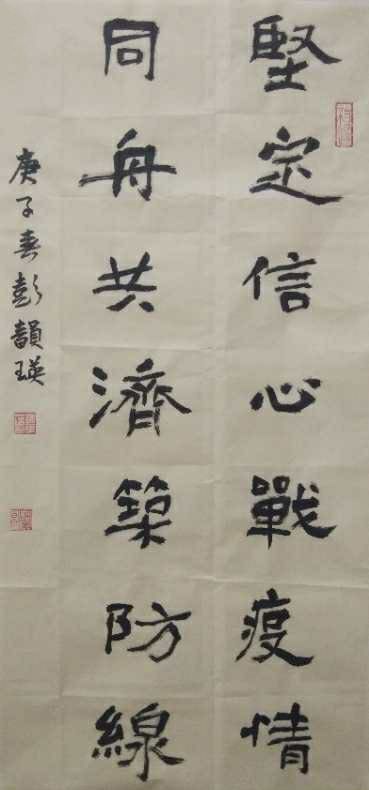 堅定信心戰疫情
同舟共濟築防線
庚子春彭韻瑛